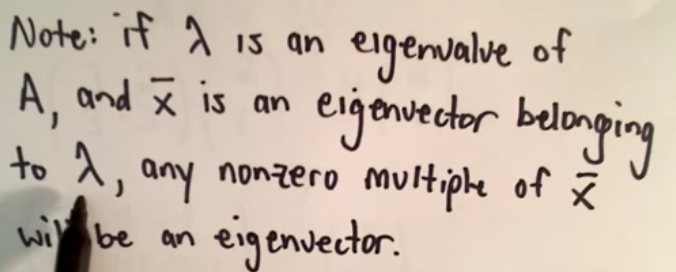 Note: if λ is an eigenvalue of
A, and x̄ is an eigenvector belonging
to λ, any nonzero multiple of x̄
will be an eigenvector.